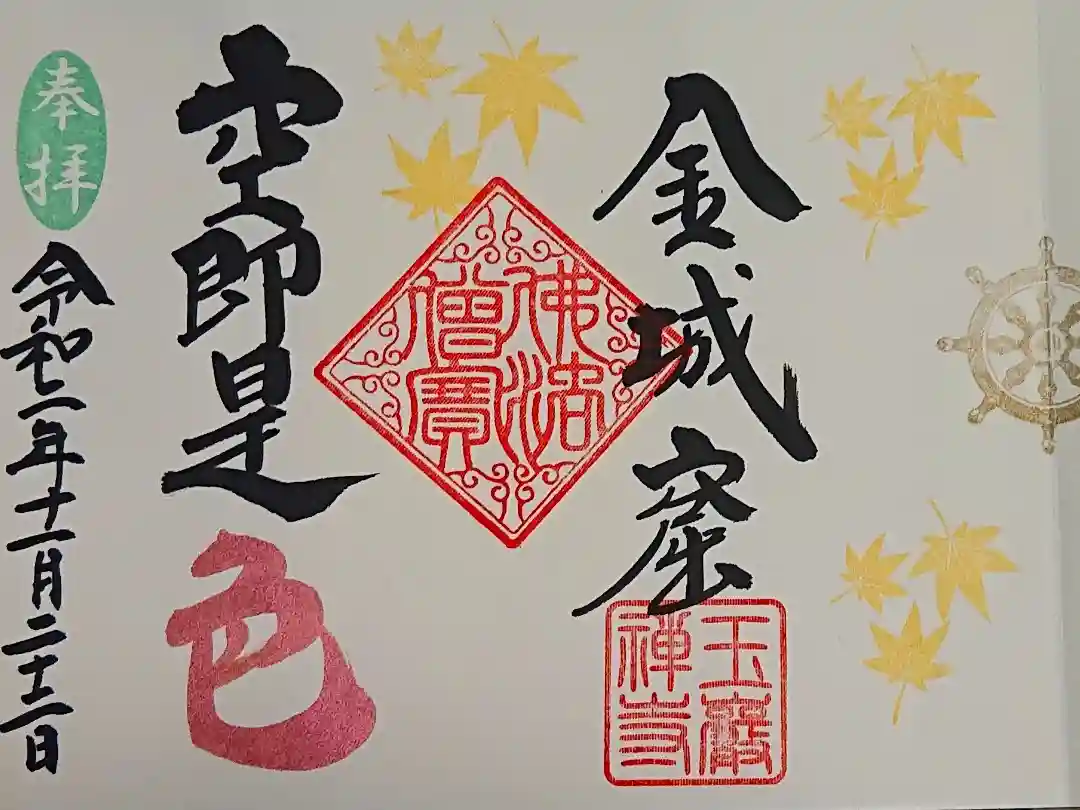 金城窟
玉巖
禪寺
佛法
僧寳
空即是色
奉拝
令和二年十一月二十二日